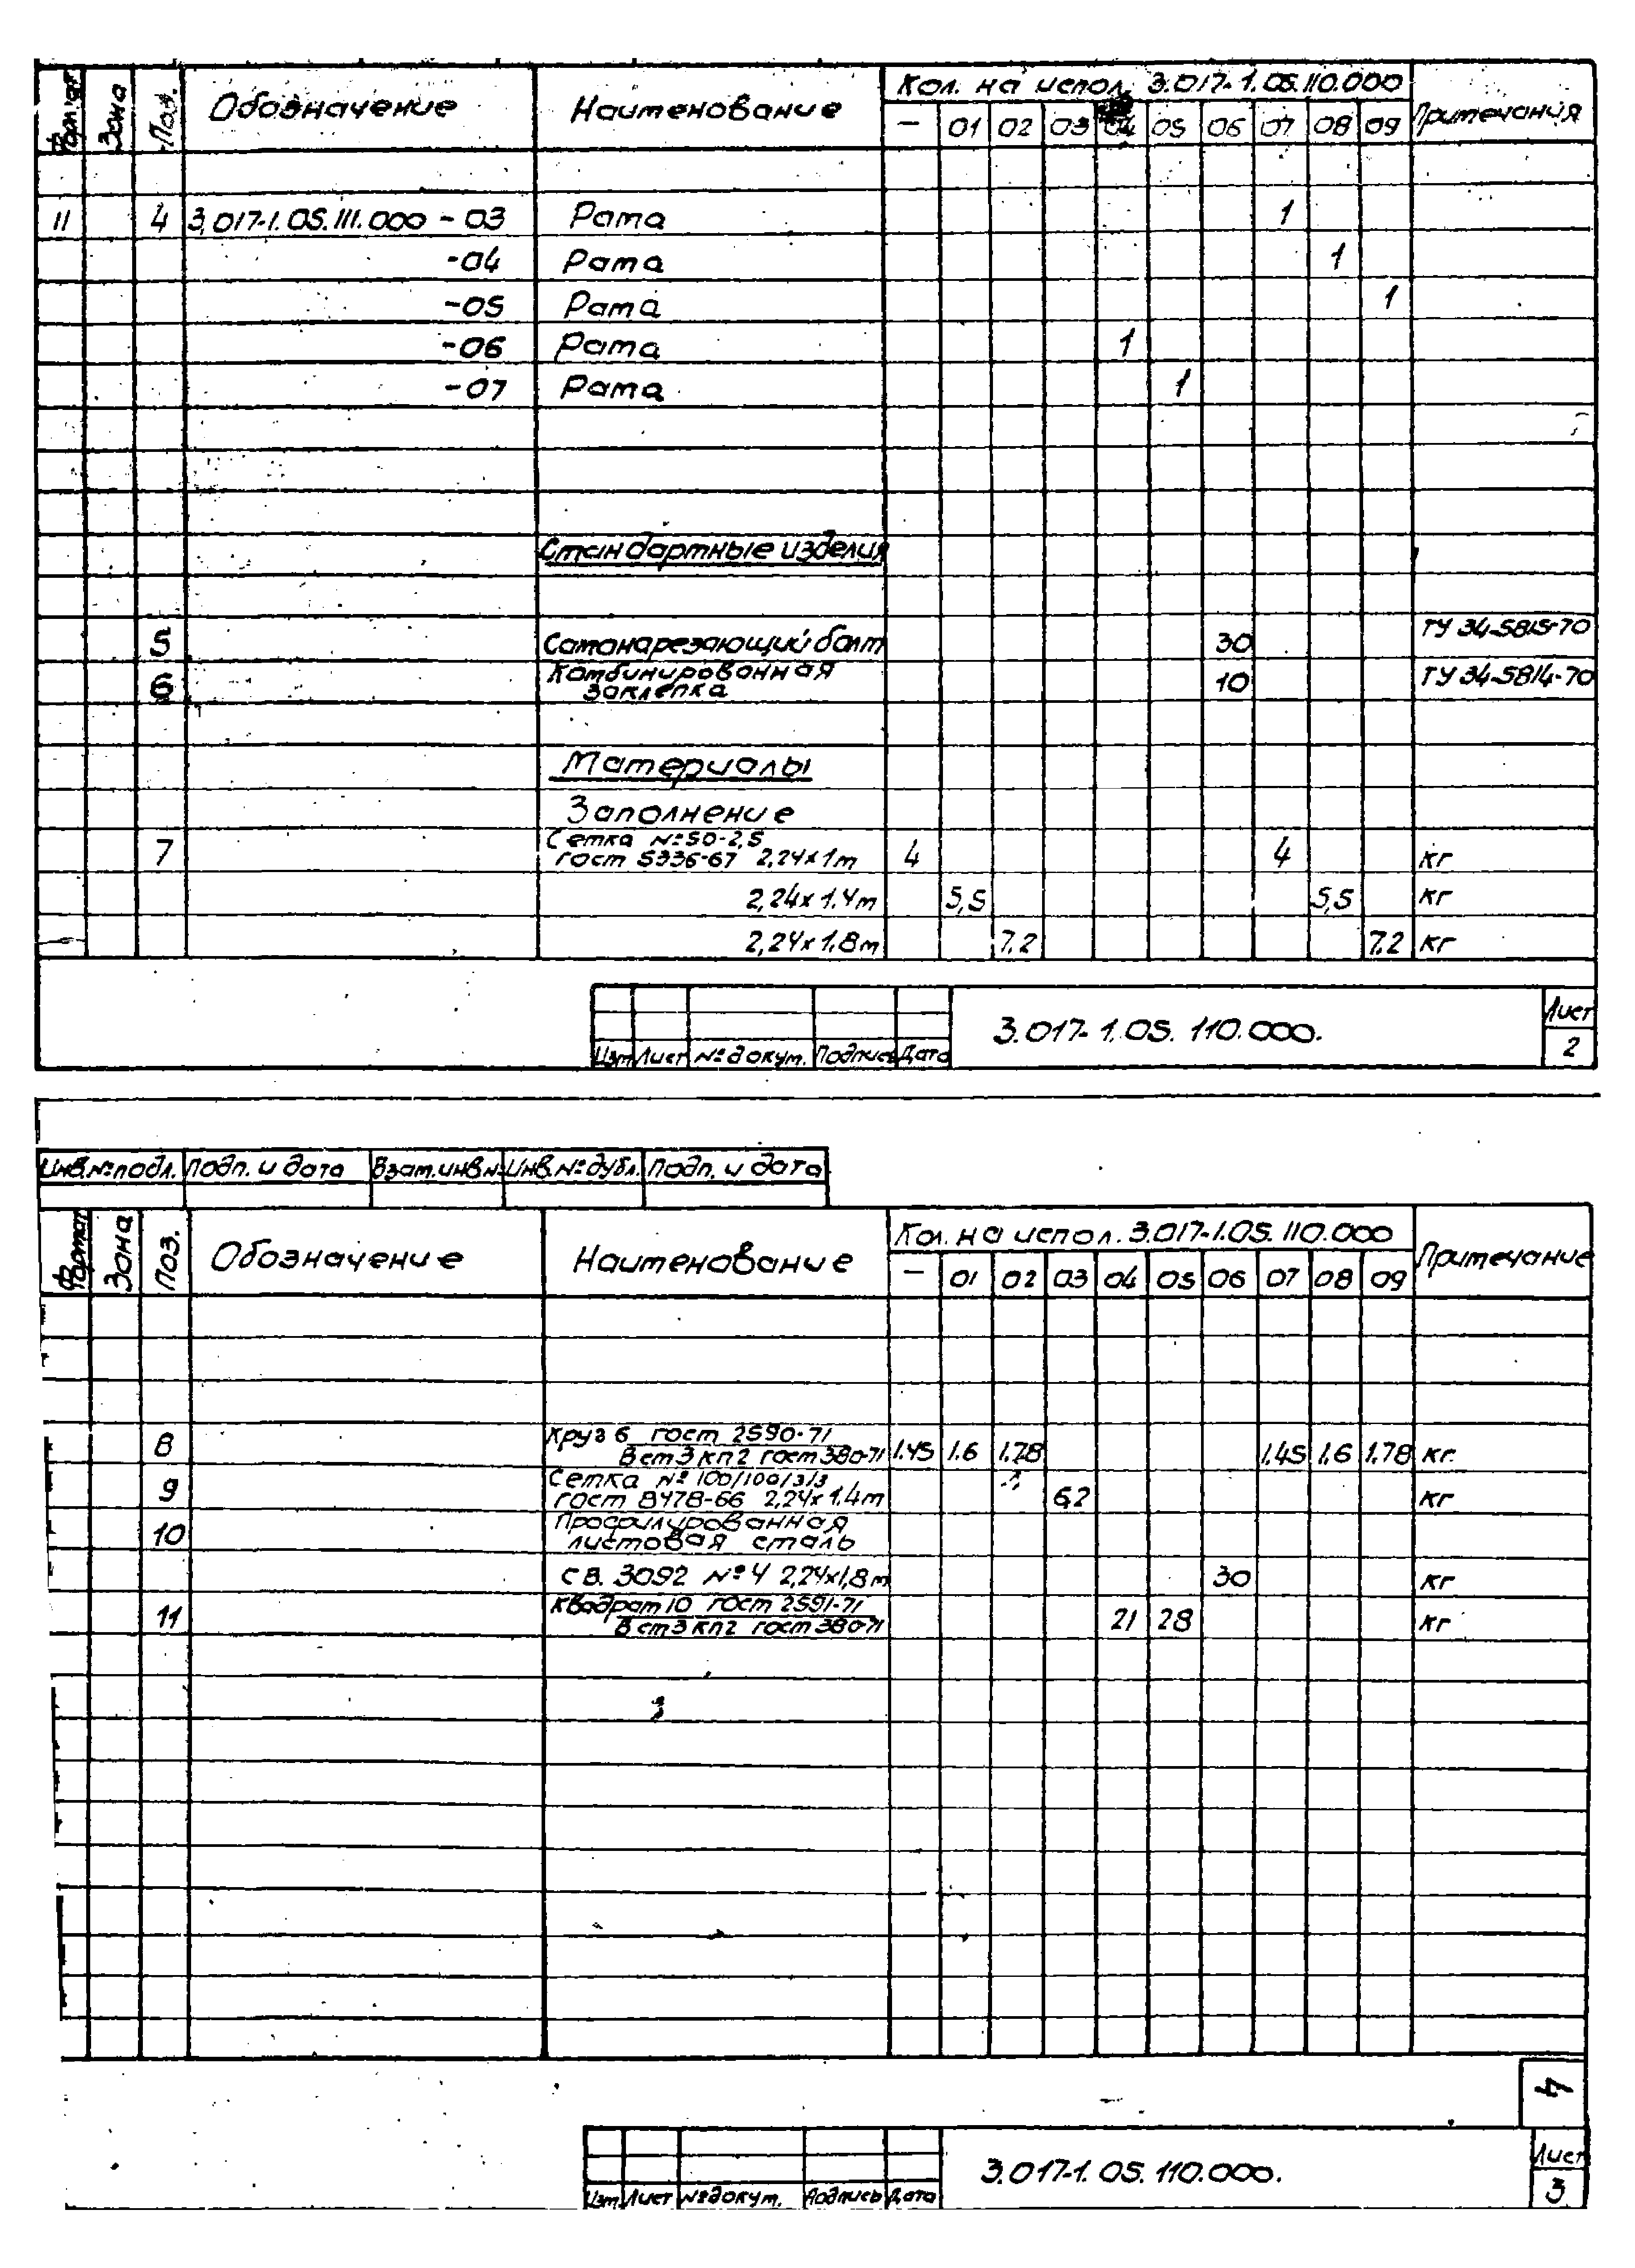 Формат Зона Поз. Обозначение Наименование Кол. на испол. 3.017-1.05.110.000 Примечания
— 01 02 03 04 05 06 07 08 09
11 4 3.017-1.05.111.000 - 03 Рама 1
-04 Рама 1
-05 Рама 1
-06 Рама 1
-07 Рама 1
Стандартные изделия
5 Самонарезающий болт 30 ТУ 34-5815-70
6 Комбинированная заклепка 10 ТУ 34-5814-70
Материалы
Заполнение
7 Сетка №50-2,5
гост 5336-67 2,24х1м 4 4 кг
2,24х1.4м 5,5 5,5 кг
2,24х1.8м 7.2 7.2 кг
3.017-1.05.110.000. Лист
Изм Лист № докум. Подпись Дата 2
Инв.№подл. Подп. и дата Взам.инв.н Инв.№дубл. Подп. и дата
Формат Зона Поз. Обозначение Наименование Кол. на испол. 3.017-1.05.110.000 Примечание
— 01 02 03 04 05 06 07 08 09
8 Круг 6 гост 2590-71
Вст3кп2 гост380-71 1.45 1.6 1.78 1.45 1.6 1.78 кг.
9 Сетка № 100/100/3/3
гост 8478-66 2,24х1.4м 6.2 кг
10 Профилированная
листовая сталь
СВ. 3092 №4 2,24х1,8м 30 кг
11 Квадрат10 гост 2591-71
Вст3кп2 гост380-71 21 28 кг
4
3.017-1.05.110.000. Лист
Изм Лист №докум. Подпись Дата 3